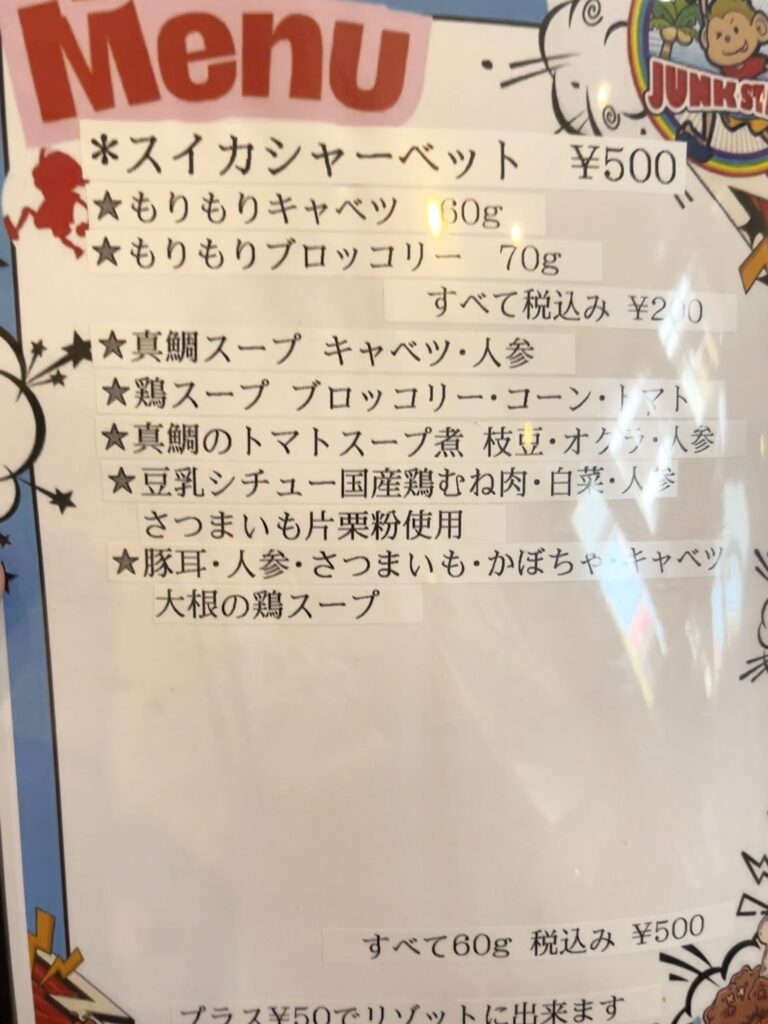 Menu
JUNK ST
*スイカシャーベット ¥500
★もりもりキャベツ 60g
★もりもりブロッコリー 70g
すべて税込み ¥200
★真鯛スープ キャベツ・人参
★鶏スープ ブロッコリー・コーン・トマト
★真鯛のトマトスープ煮 枝豆・オクラ・人参
★豆乳シチュー国産鶏むね肉・白菜・人参
さつまいも片栗粉使用
★豚耳・人参・さつまいも・かぼちゃ・キャベツ
大根の鶏スープ
すべて60g 税込み ¥500
プラス¥50でリゾットに出来ます